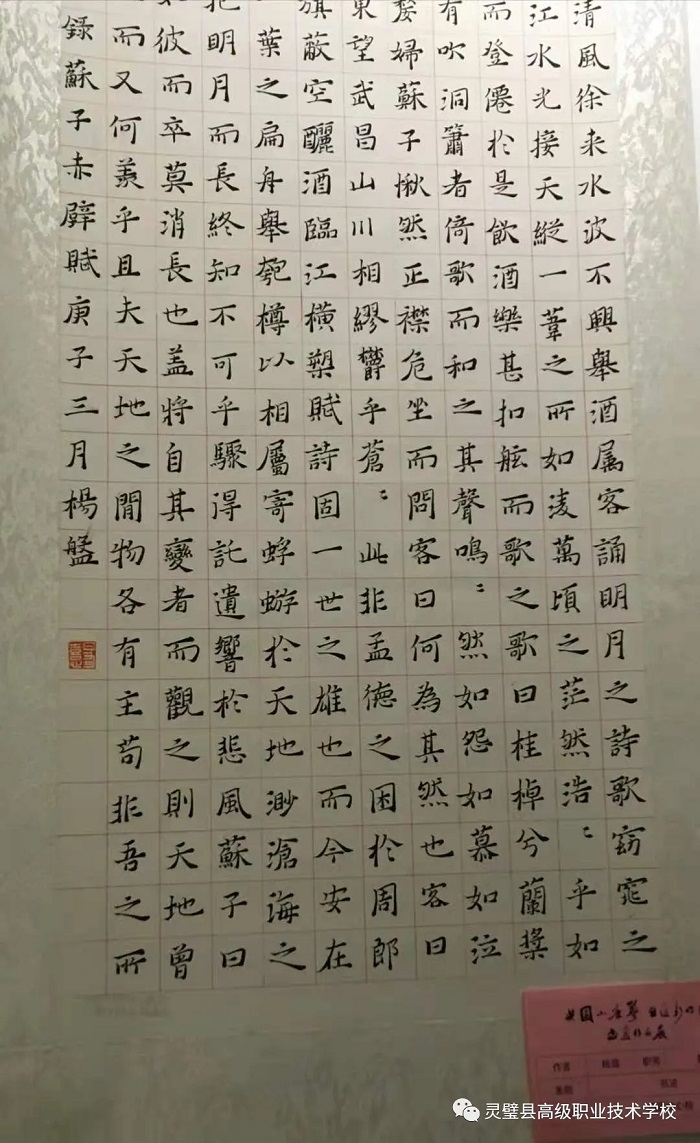 清風徐来水波不興舉酒属客誦明月之詩歌窈窕之
江水光接天縱一葦之所如淩萬頃之茫然浩〻乎如
而登僊於是飲酒樂甚扣舷而歌之歌曰桂棹兮蘭槳
有吹洞簫者倚歌而和之其聲鳴〻然如怨如慕如泣
嫠婦蘇子愀然正襟危坐而問客曰何為其然也客曰
東望武昌山川相繆欝乎蒼〻此非孟德之困於周郎
旗蔽空釃酒臨江橫槊賦詩固一世之雄也而今安在
葉之扁舟舉匏樽以相屬寄蜉蝣於天地渺滄海之
抱明月而長終知不可乎驟得託遺響於悲風蘇子曰
彼而卒莫消長也盖將自其變者而觀之則天地曾
而又何羨乎且夫天地之間物各有主苟非吾之所
錄蘇子赤壁賦庚子三月楊艋
作者
职务
灵璧县高级职业技术学校